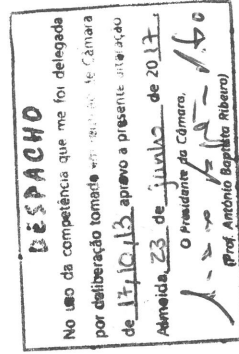 DESPACHO
No uso da competência que me foi delegada
por deliberação tomada em reunião de Câmara
de 17/10/13 aprovo a presente alteração
Almeida, 23 de junho de 2017
O Presidente da Câmara,
(Prof. António Baptista Ribeiro)